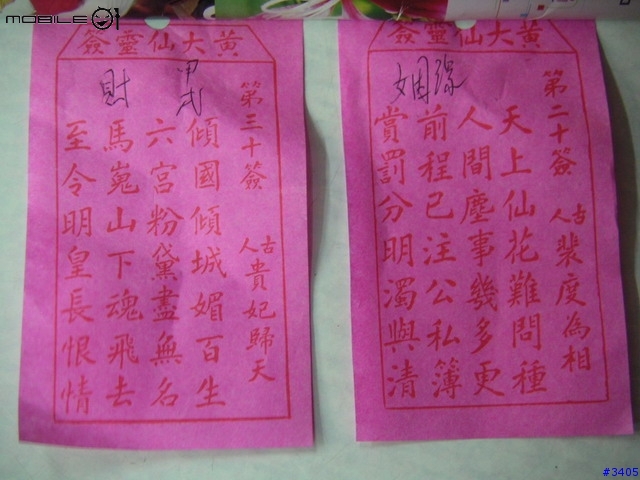 mobile01
黃大仙靈簽
財
第三十簽
古人 貴妃歸天
傾國傾城媚百生
六宮粉黛盡無名
馬嵬山下魂飛去
至令明皇長恨情
黃大仙靈簽
姻緣
第二十簽
古人 裴度為相
天上仙花難問種
人間塵事幾多更
前程已注公私簿
賞罰分明濁與清
#3405